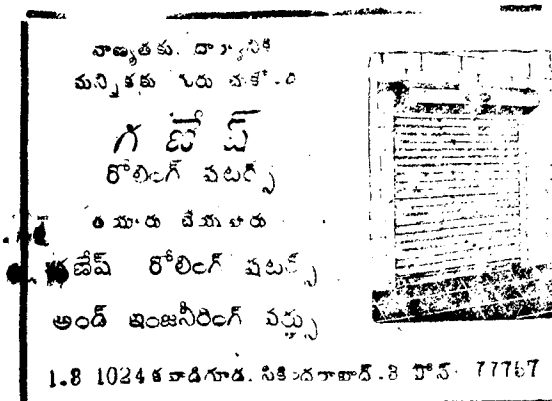 నాణ్యతకు, దార్ఢ్యానికి
మన్నికకు పేరు
గణేష్
రోలింగ్ షటర్స్
తయారు చేయువారు
గణేష్ రోలింగ్ షటర్స్
అండ్ ఇంజనీరింగ్ వర్క్సు
1.8 1024 కవాడిగూడ. సికింద్రాబాద్.3 ఫోన్: 77767